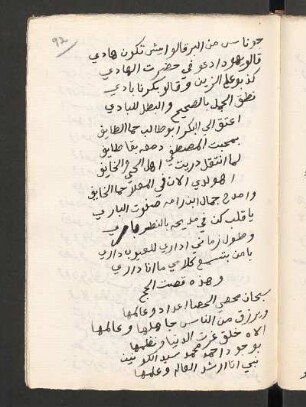 92
جوناس من البر قالو ايش تكون هادي
قالو يهود ادعو في حضرت الهادي
كذبو علم الزين وقالو بكرنا بادي
نطق الجمل بالصحيح والبطل للبادي
اعتق الى البكر ابو طالب حما الطايق
بمحبت المصطفى دمعه بقا طايق
لما انتقل دريت اهل الحي والخايق
اهو لدي الان في حما الخايق
وامدح جمال ابن رامه صفوت الباري
يا قلب كن في مديحه بالنظم
وطول زماني اداري للعيون داري
يا من يتسمع كلامي ما انا داري
وهذه قصت الحج
سبحان محصي الحصا اعداد وعالمها
ويرزق من الناس جاهلها وعالمها
الاه خلق عزت الدنيا ونظمها
بوجود احمد محمد سيد الكونين
نبي انا ارشد العالم وعلمها